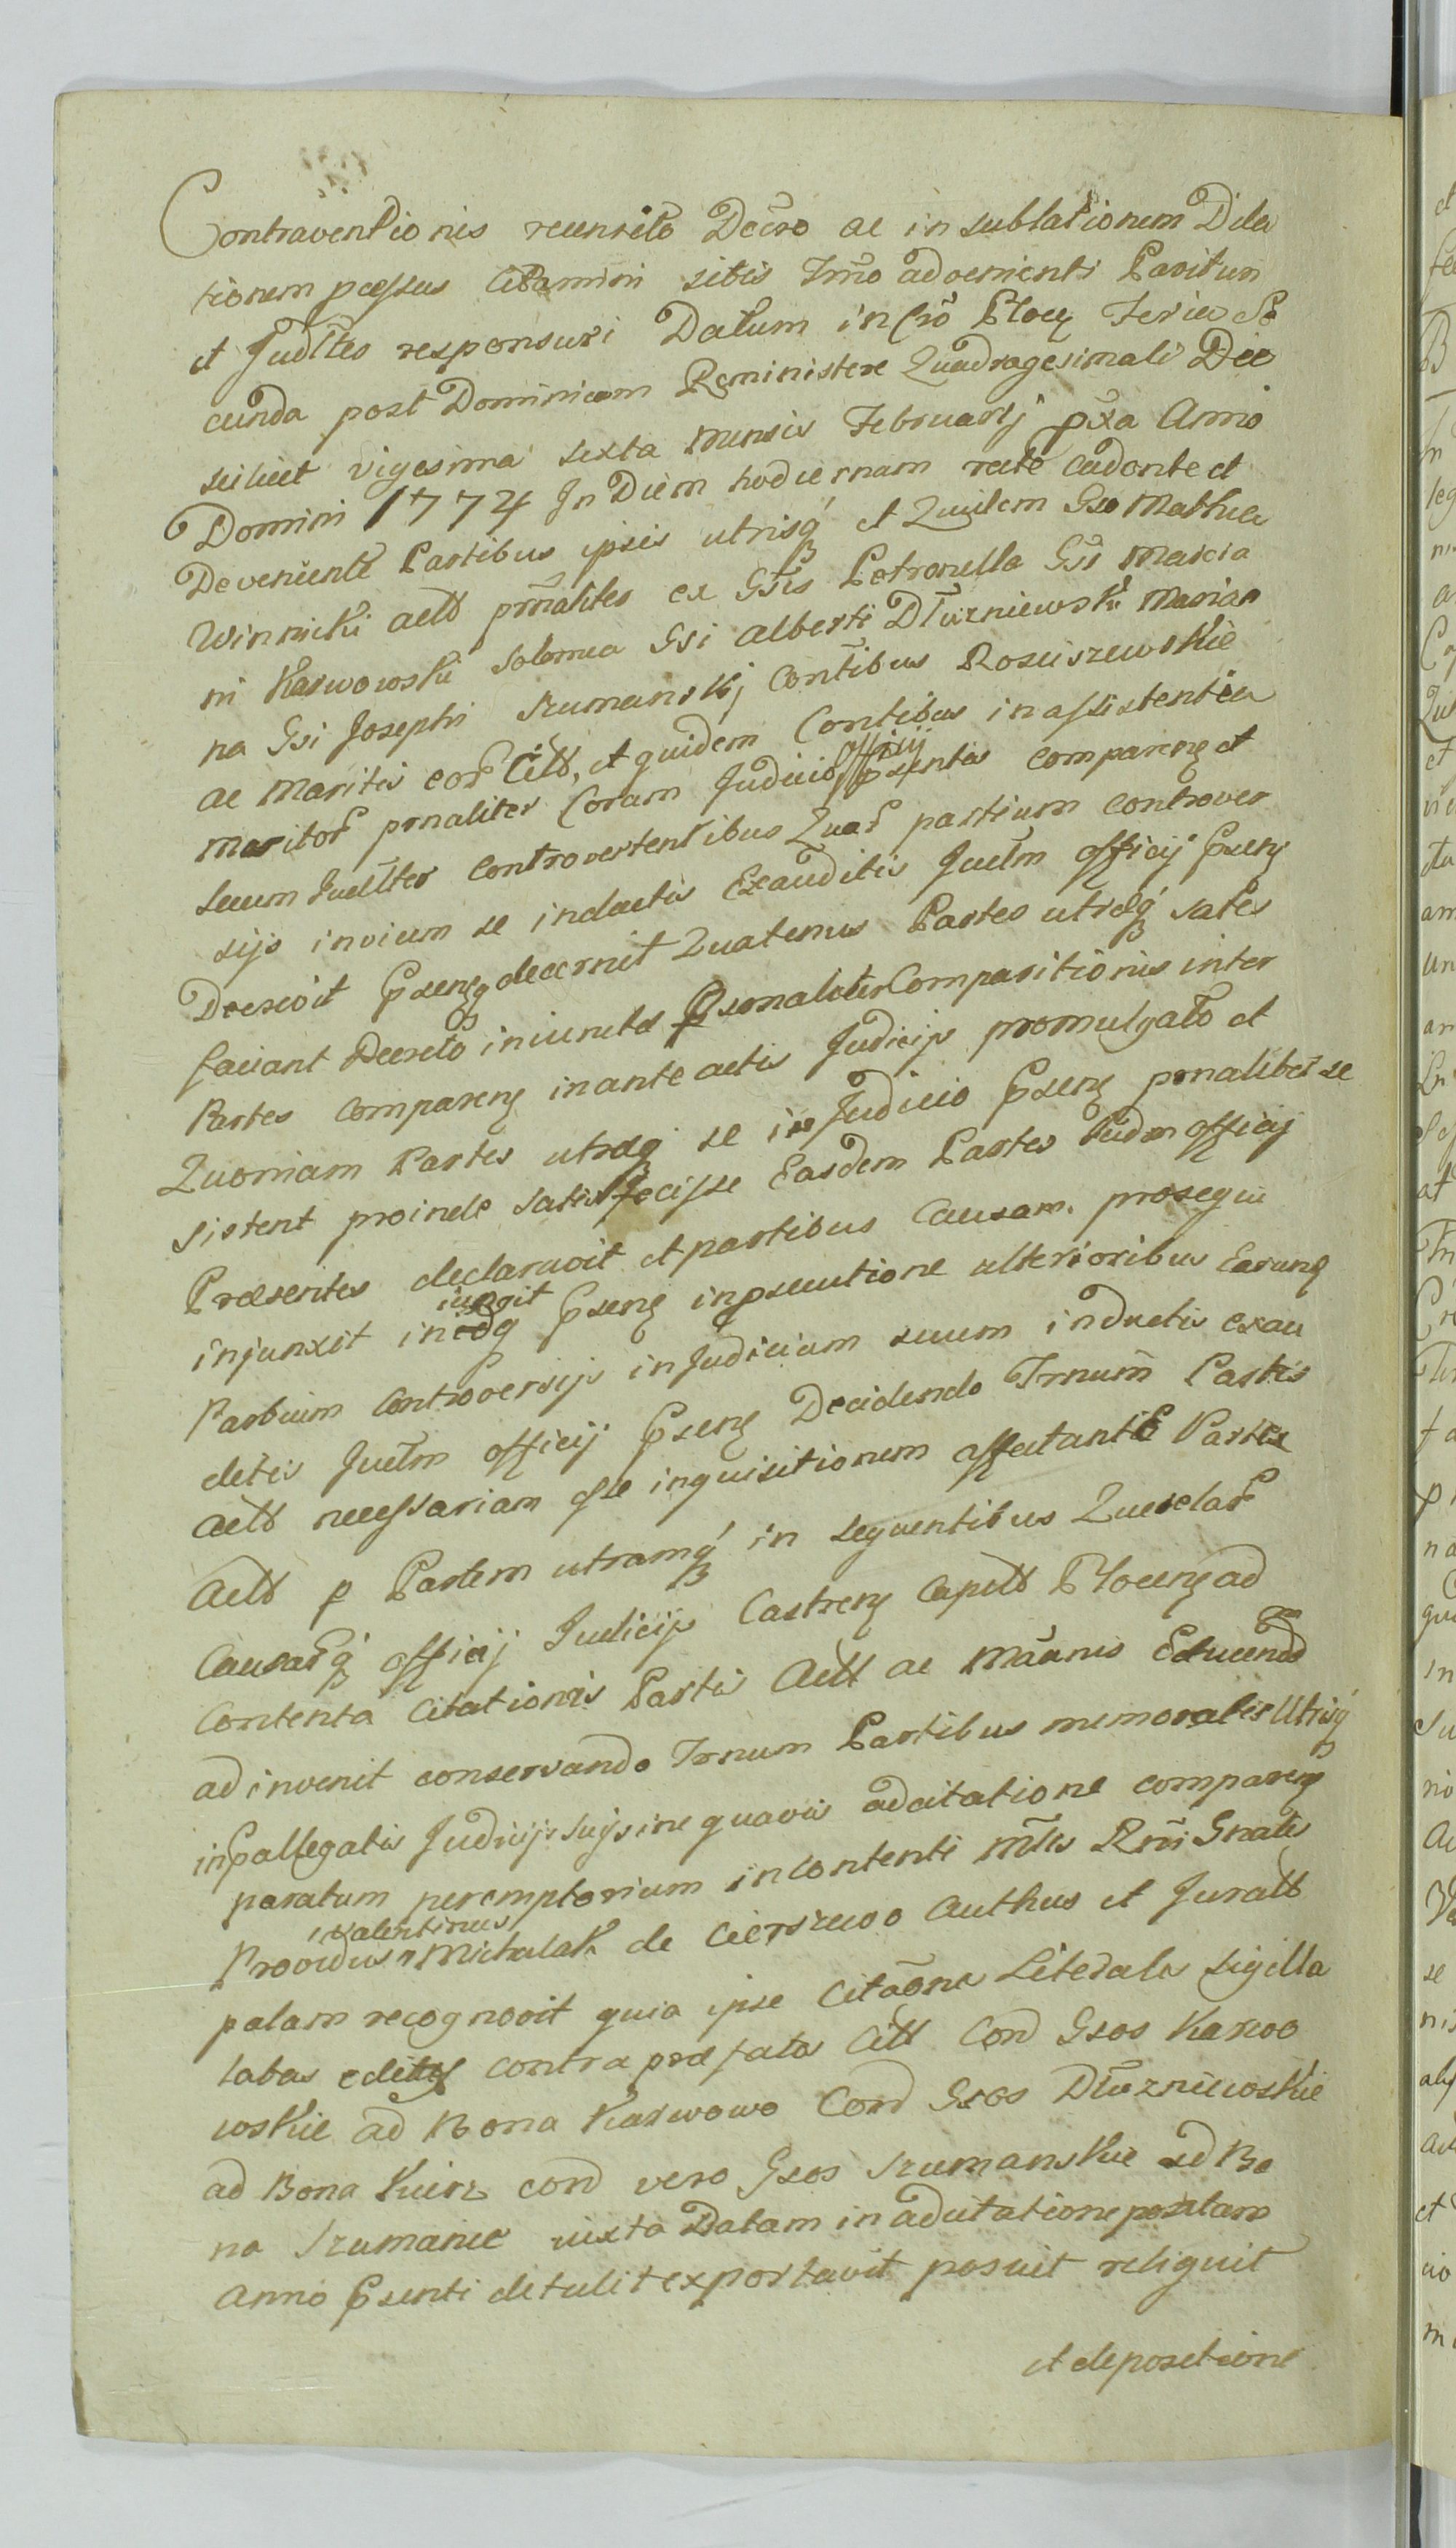 Contraventionis recensito Decro ac in sublationem Dila
tionem passus Citamini sitis Trno advenienti Parituri
et Juditer responsuri Datum in Cro Ploceñ Feria Se
cunda post Dominicam Reminiscere Quadragesimali Die
scilicet vigesima sexta Mensis Februarij pxa Anno
Domini 1774 In Diem hodiernam recte cadente et
Deveniente Partibus ipsis utrisq et Quidem Gso Mathia
Winnicki actt prnaliter ex Gsis Petronella Gsi Marcia
ni Karwowski Salomea Gsi Alberti Dłuzniewski Marian
na Gsi Josephi Szumanskij Contibus Rosciszewskie
ac Maritis eor Citt, et quidem Contibus in assistentia
Maritor prnaliter Coram Judicio officij psentis comparen et
secum Juditer Controvertentibus Quar partium controver
sijs invicem se inductis Exauditis Judm officij Psens
Decrevit Psensq decernit Quatenus Partes utraeq satis
faciant Decreto iniuncta Psonaliter Comparitionis inter
Partes comparen in ante actis Judicijs promulgato et
Quoniam Partes utraeq se in Judicio Psens prnaliter se
sistent proinde satis fecisse Easdem Partes Judm officij
Praesentes declaravit et partibus Causam prosequi
injunxit iungit Psens in psecutione ulterioribus Earunq
Partium Controversijs in Judicium suum inductis exau
ditis Judm officij Psens Decidendo Trnum Partis
actt necessariam esse inquisitionem affectantis Partis
actt p Partem utramq in sequentibus Querelar
Causarq officij Judicijs Castrens Capitt Plocens ad
Contenta Citationis Partis Actt ac Maanis Educend
ad invenit conservando Trnum Partibus memoratis Utrisq
in Pallegatis Judicijs suis sine quavis adcitatione comparens
paratum peremptorium in contenti Mtis Rni Gnalis
Providus Valentinus Michalak de Cierszewo Authus et Juratt
palam recognovit quia ipse Citaone Literales Sigilla
tabas editas contra praefatos Citt Cond Gsos Karwo
wskie ad Bona Karwowo Cond Gsos Dłuzniewskie
ad Bona Kuierz cond vero Gsos Szumanskie ad Bo
na Szumanie iuxta Datam in adcitatione positam
Anno Psenti detulit exportavit posuit reliquit
et depositione